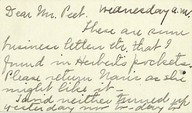 Dear Mr. Peet. Wednesday a.m.
These are some
business letters etc. that I
found in Herbert's pockets.
Please return Marie as she
might like it -
David neither turned up
yesterday nor to-day